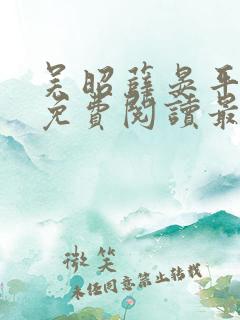 吴昭薛晏平
免費閱讀最
微笑
未经同意禁止转载